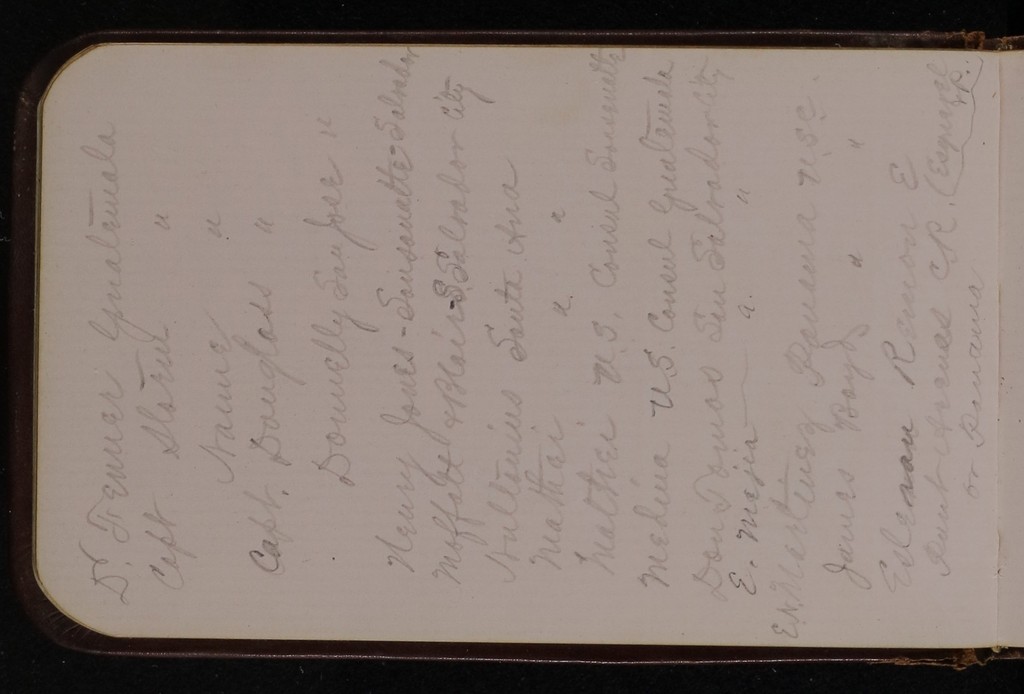 Dr. Fenner Guatemala
Capt. "
Nanne "
Capt. Douglass "
Donnelly San Jose "
Henry Jones - Sonsonatte - Salvador
Moffatt & Blair - S. Salvador City
Santa Ana
Mathei " "
Mathei U.S. Consul Sonsonatte
Medina U.S. Consul Guatemala
Don Tomas San Salvador City
E. Mejia " "
E.N. Martinez Panama U.S.C.
James Boyd " "
Ramon E
Punt Arenas C.R. (
or Panama